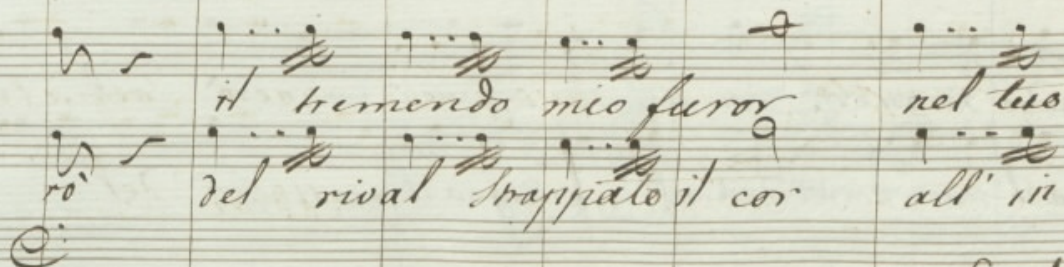 il tremendo mio furor nel tuo
rò del rival strappato il cor all' in